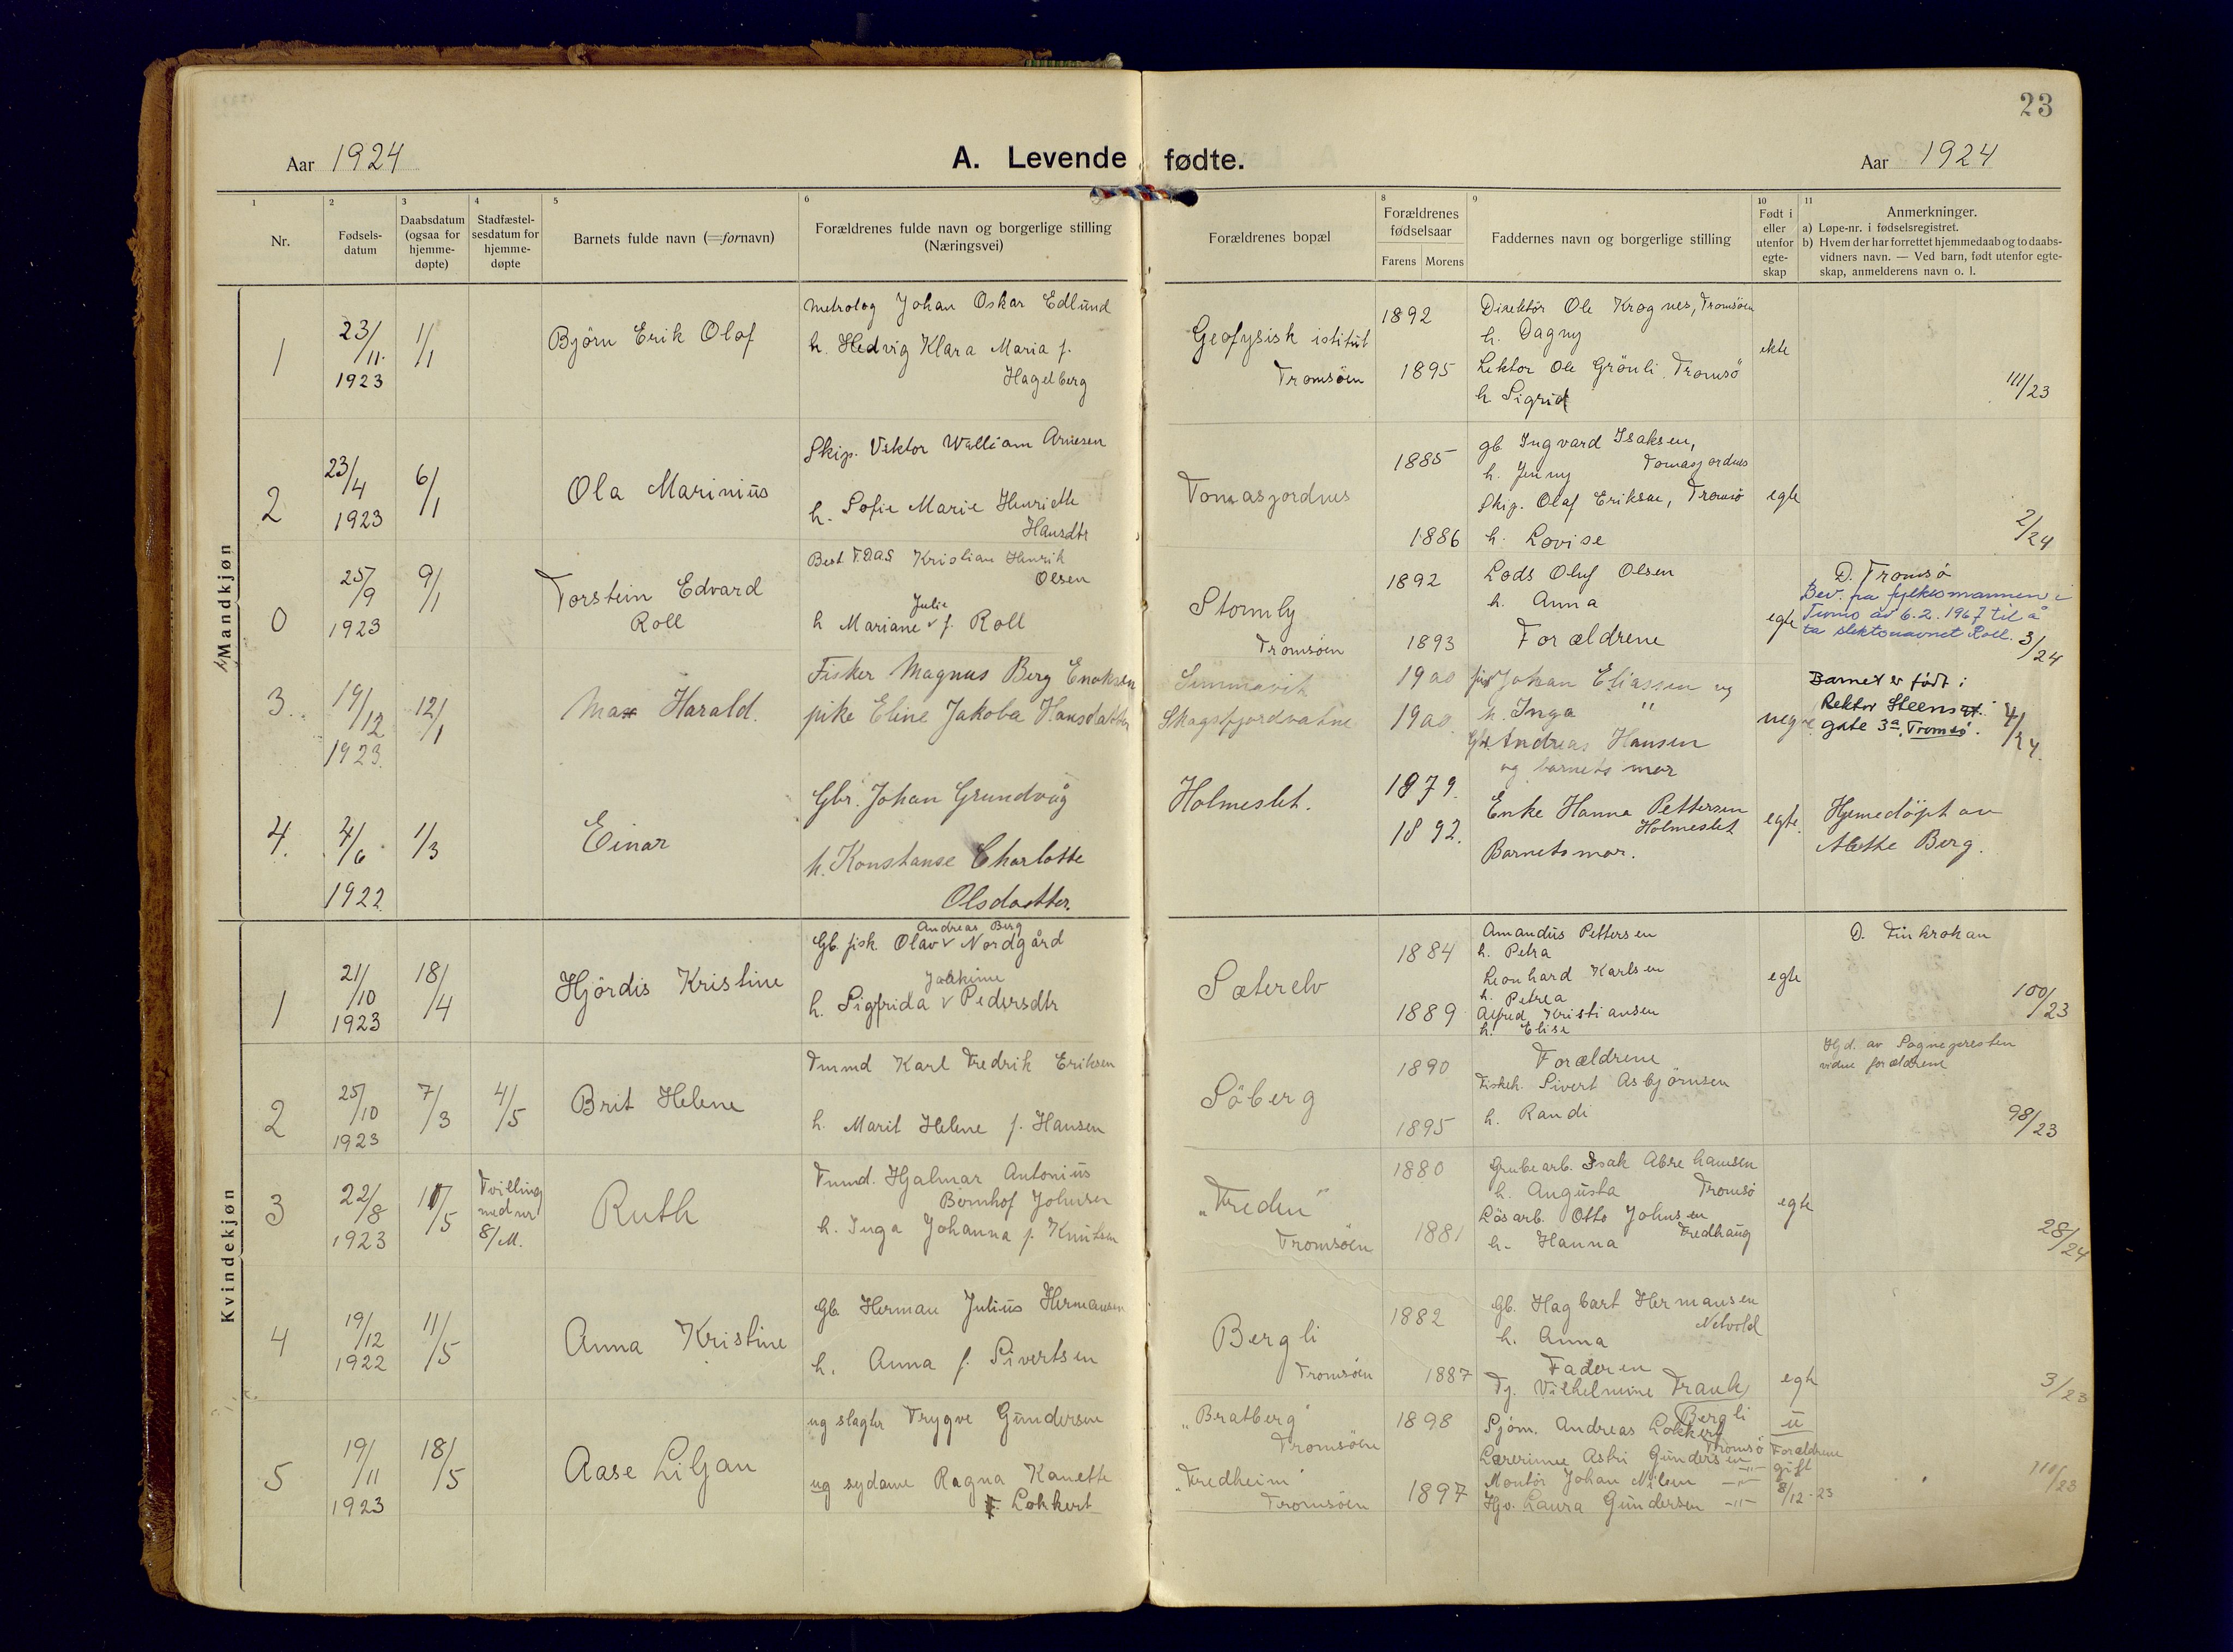 23
Aar 1924
A. Levende fødte.
Aar 1924
1
2
3
4
5
6
8
9
10
11
Nr.
Fødsels-
datum
Daabsdatum
(ogsaa for
hjemme-
døpte)
Stadfæstel-
sesdatum for
hjemme-
døpte
Barnets fulde navn (=fornavn)
Forældrenes fulde navn og borgerlige stilling
(Næringsvei)
Forældrenes bopæl
Forældrenes
fødselsaar
Farens Morens
Faddernes navn og borgerlige stilling
Født i
eller
utenfor
egte-
skap
Anmerkninger.
a) Løpe-nr. i fødselsregistret.
b) Hvem der har forrettet hjemmedaab og to daabs-
vidners navn. — Ved barn, født utenfor egte-
skap, anmelderens navn o. l.
Mandkjøn
1
23/11.
1923
1/1
Björn Erik Olaf
Metrolog Johan Oskar Edlund
h. Hedvig Klara Maria f.
Hagelberg
Geofysisk istitut
Tromsöen
1892
1895
Direktör Ole Krognes, Tromsöen
h. Dagny
Lektor Ole Grönli, Tromsö
h. Sigrid
ekte
111/23
2
23/4
1923
6/1
Ola Marinius
Skip. Viktor William Arnesen
h. Sofie Marie Henriette
Hansdtr
Tomasjordnes
1885
1886
gb. Ingvard Isaksen,
h. Jenny Tomasjordnes
Skip. Olaf Eriksen, Tromsö
h. Lovise
egte
2/24
0
25/9
1923
9/1
Torstein Edvard
Roll
Best. T.D.A.S Kristian Henrik
Olsen
Julie
h Mariane v f. Roll
Stormly
Tromsöen
1892
1893
Lods Oluf Olsen
h. Anna
Forældrene
egte
D. Tromsö
Bev. fra fylkesmannen i
Troms av 6.2.1967 til å
ta slektsnavnet Roll.
3/24
3.
19/12
1923.
12/1
Max Harald.
Fisker Magnus Berg Enoksen
pike Eline Jakoba Hansdatter
Simmavik
Skagsfjordvatne
1900
1900.
Johan Eliassen og
h. Inga "
Gbr. Andreas Hansen
og barnets mor
uegte
Barnet er født i
Rektor Steens gt.
gate 3a, Tromsø.
4/24.
4.
4/6
1922
1/3
Einar
Gbr. Johan Grundvåg
h. Konstanse Charlotte
Olsdatter.
Holmeslet.
1879.
1892.
Enke Hanna Pettersen
Holmeslet
Barnets mor.
egte.
Hjemedöpt av
Alette Berg.
Kvindekjøn
1
21/10
1923
18/4
Hjördis Kristine
Andreas Berg
Gb. fisk. Olav v Nordgård
Joakime
h. Sigfrida v Pedersdtr
Sæterelv
1884
1889
Amandus Pettersen
h. Petra
Leonhard Karlsen
h. Petrea
Alfred Kristiansen
h. Elise
egte
D. Finkrokan
100/23
2
25/10
1923
7/3
4/5
Brit Helene
Tmmd Karl Fredrik Eriksen
h. Marit Helene f. Hansen
Söberg
1890
1895
Forældrene
Fiskeh. Sivert Asbjörnsen
h. Randi
Hjd. av Sognepresten
vidne forældrene
98/23
3
22/8
1923
11/5
Tvilling
med nr
8/M.
Ruth
Tmmd. Hjalmar Antonius
Bernhof Johnsen
h. Inga Johanna f. Knutsen
"Freden"
Tromsöen
1880
1881
Grubearb. Isak Abrehamsen
h. Augusta Tromsö
Lösarb. Otto Johnsen
h. Hanna Fredhaug
egte
28/24
4
19/12
1922
11/5
Anna Kristine
Gb Herman Julius Hermansen
h. Anna f. Sivertsen
Bergli
Tromsöen
1882
1887
Gb. Hagbart Hermansen
h. Anna
Faderen
Tj. Vilhelmine Frank
Bergli
egte
3/23
5
19/11
1923
18/5
Aase Liljan
ug slagter Trygve Gundersen
ug sydame Ragna Kanette
f. Lokkert
"Bratberg"
Tromsöen
"Fredheim"
Tromsöen
1898
1897
Sjöm. Andreas Lokkert
Tromsö
Lærerinne Astri Gundersen —"—
Montör Johan Nilsen —"—
Hjv. Laura Gundersen —"—
u
Forældrene
gift
8/12-23
110/23